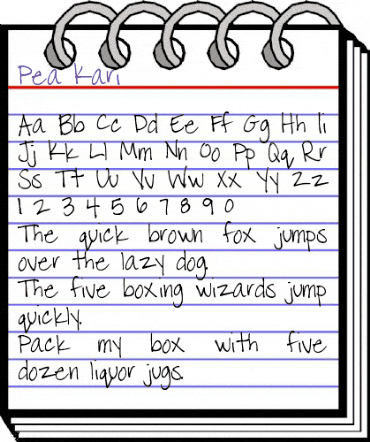 Pea Kari
Aa Bb Cc Dd Ee Ff Gg Hh Ii
Jj Kk Ll Mm Nn Oo Pp Qq Rr
Ss Tt Uu Vv Ww Xx Yy Zz
1 2 3 4 5 6 7 8 9 0
The quick brown fox jumps
over the lazy dog.
The five boxing wizards jump
quickly.
Pack my box with five
dozen liquor jugs.